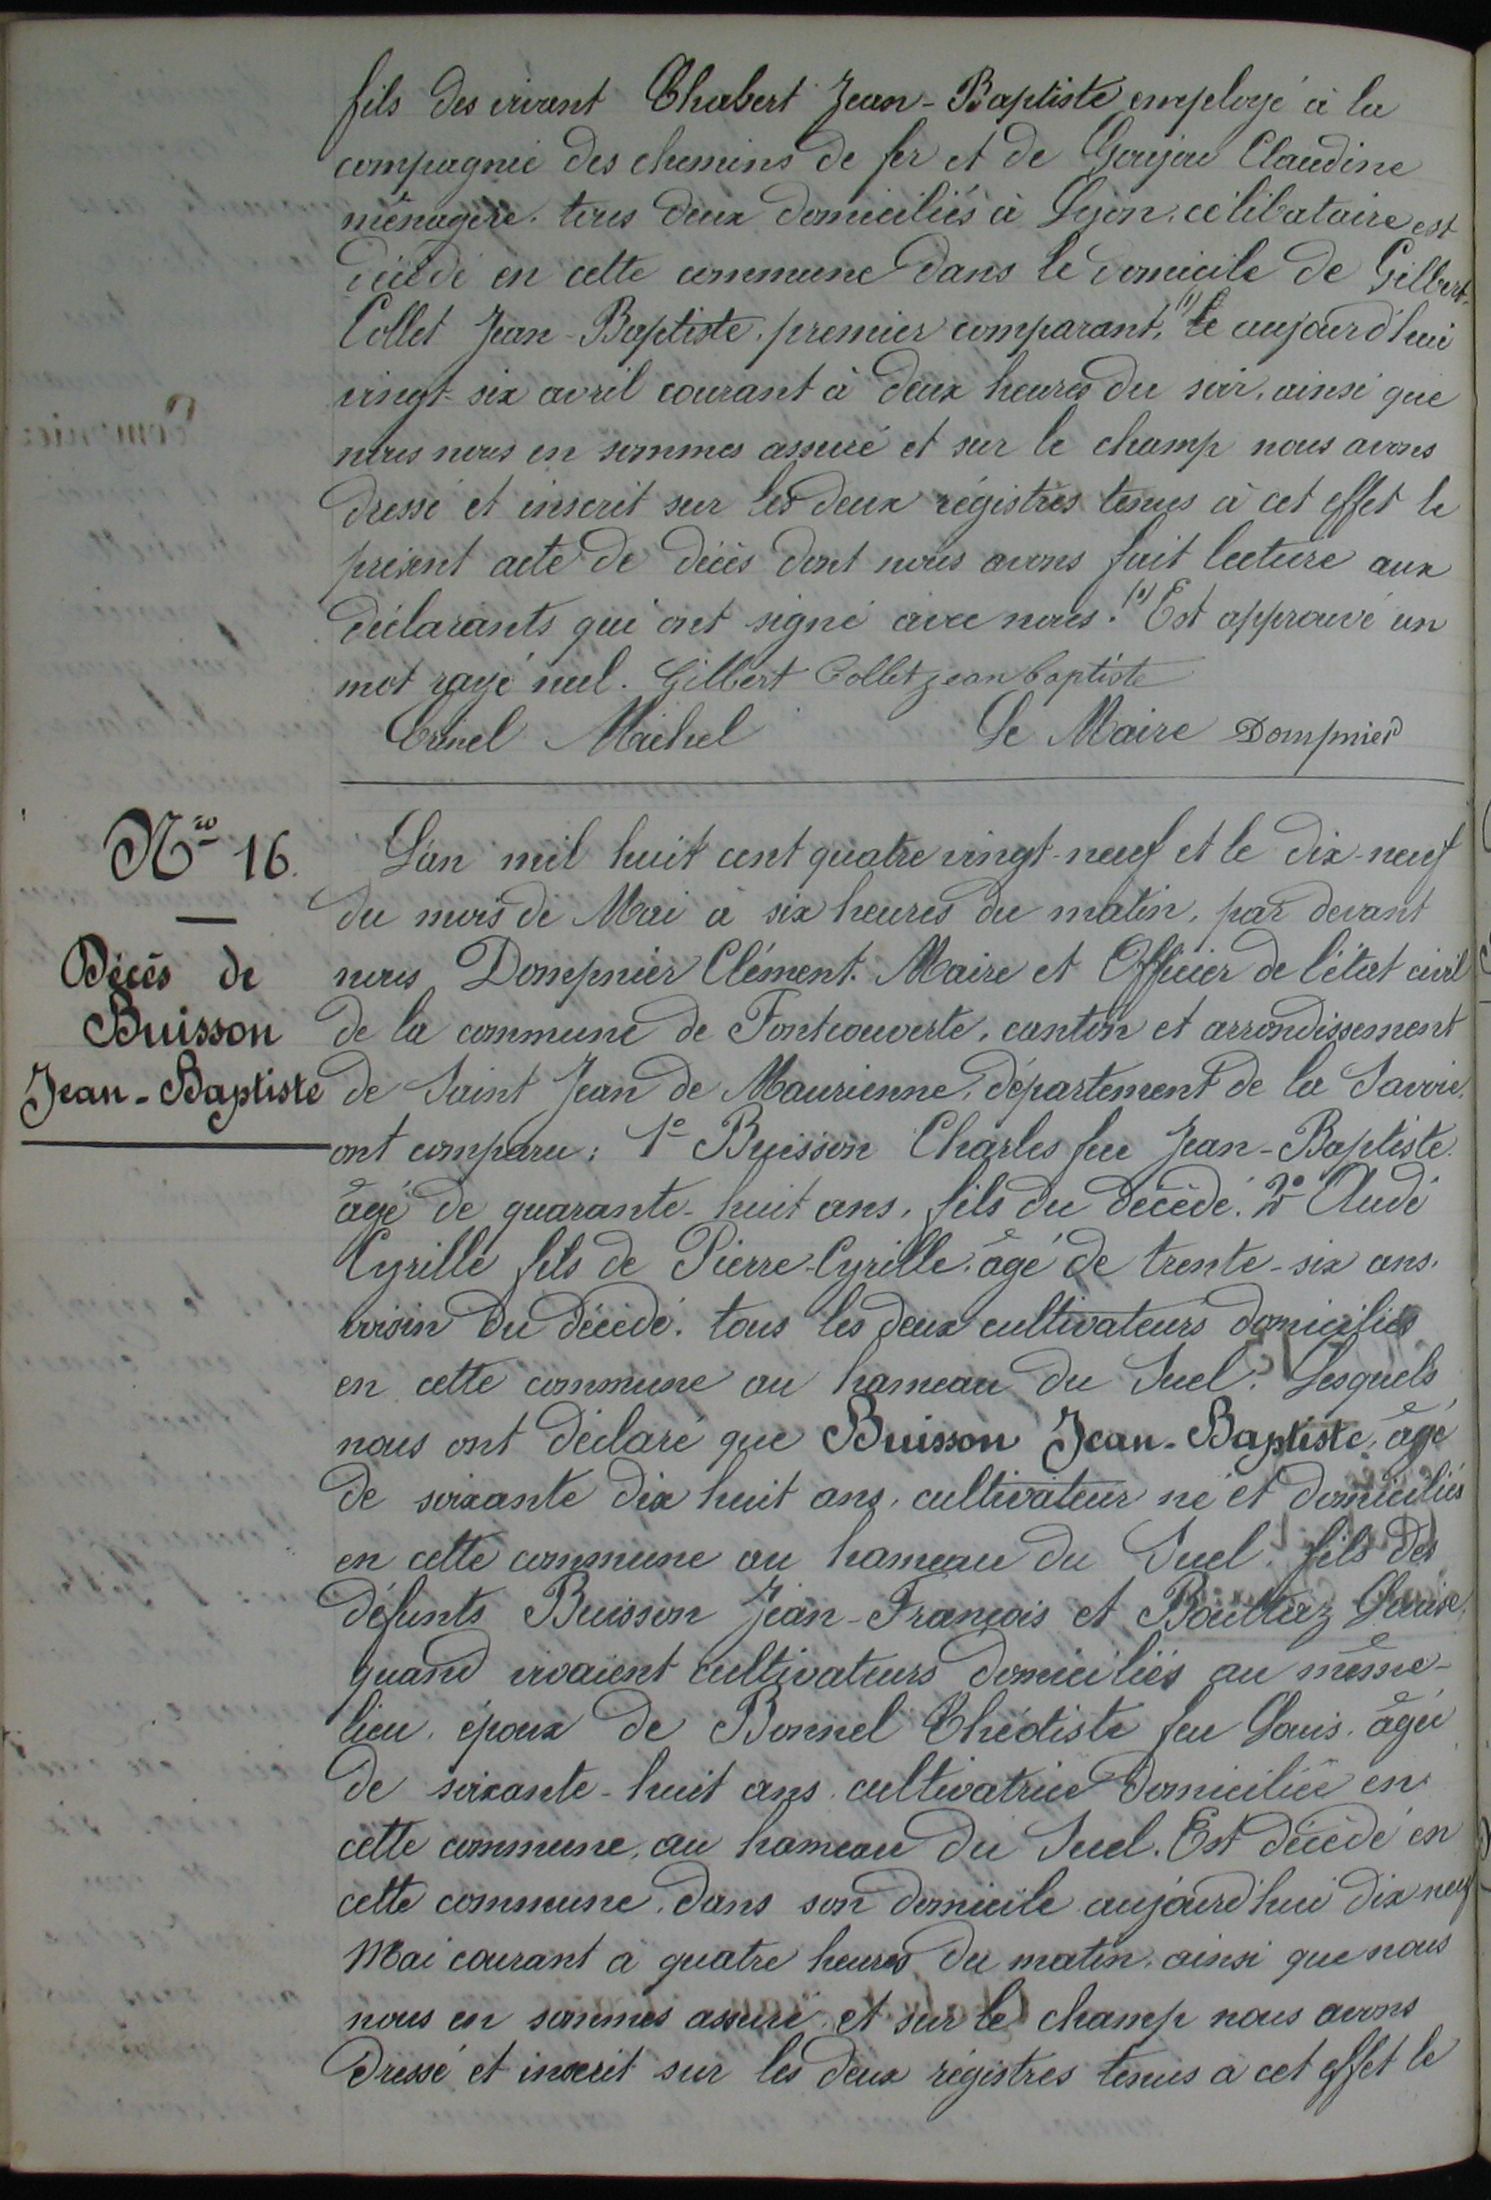 fils des vivant Chabert Jean-Baptiste employé à la
compagnie des chemins de fer et de Goujou Claudine
ménagère. tous deux domiciliés à Lyon, célibataire est
décédé en cette commune dans le domicile de Gilbert-
Collet Jean-Baptiste. premier comparant, (1) le aujourd'hui
vingt-six avril courant à deux heures du soir, ainsi que
nous nous en sommes assuré et sur le champ nous avons
dressé et inscrit sur les deux régistres tenus à cet effet le
présent acte de décès dont nous avons fait lecture aux
déclarants qui ont signé avec nous. (1) Est approuvé un
mot rayé nul. Gilbert Collet jean baptiste
Michel
Le Maire Dompnier
Nro 16.
Décès de
Buisson
Jean-Baptiste
L'an mil huit cent quatre vingt-neuf et le dix-neuf
du mois de Mai à six heures du matin, par devant
nous Dompnier Clément. Maire et Officier de l'état civil
de la commune de Fontcouverte, canton et arrondissement
de Saint Jean de Maurienne, département de la Savoie,
ont comparu: 1° Buisson Charles feu Jean-Baptiste.
âgé de quarante-huit ans, fils du décédé. 2° Audé
Cyrille fils de Pierre-Cyrille. âgé de trente-six ans.
voisin du décédé. tous les deux cultivateurs domiciliés
en cette commune au hameau du Suel. Lesquels
nous ont déclaré que Buisson Jean-Baptiste, âgé
de soixante dix huit ans, cultivateur né et domiciliés
en cette commune au hameau du Suel. fils des
défunts Buisson Jean-François et Bouttaz Louise,
quand vivaient cultivateurs domiciliés au même-
lieu, époux de Bonnel Théotiste feu Louis. âgée
de soixante-huit ans. cultivatrice domiciliée en
cette commune, au hameau du Suel. Est décédé en
cette commune, dans son domicile aujourd'hui dix neuf
Mai courant à quatre heures du matin, ainsi que nous
nous en sommes assuré et sur le champ nous avons
dressé et inscrit sur les deux régistres tenus à cet effet le